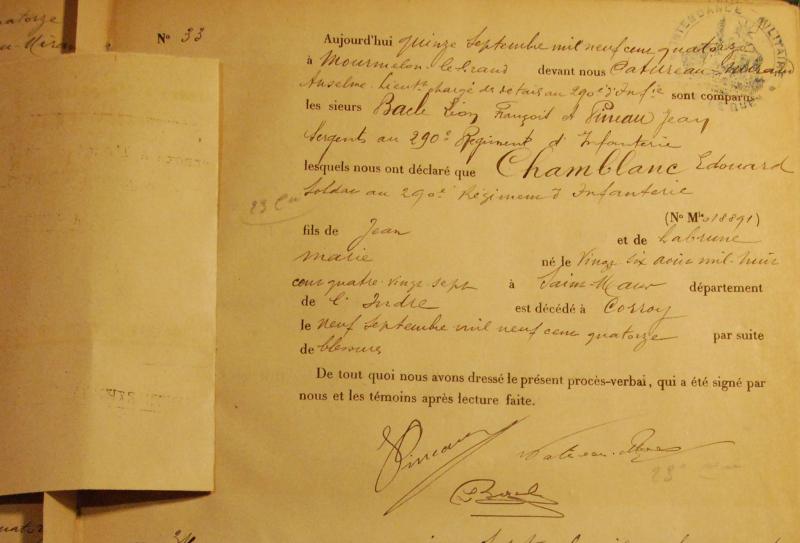 N° 33
Aujourd'hui quinze Septembre mil neuf cent quatorze
à Mourmelon-le-Grand devant nous Catureau-
Anselme. Lieutt chargé des détails au 290e d'Infie sont comparus
les sieurs Bacle Léon François et Pineau Jean
Sergents au 290e Régiment d'Infanterie
lesquels nous ont déclaré que Chamblanc Edouard
Soldat au 290e Régiment d'Infanterie
23 Cie
(N° Mle 018891)
fils de Jean et de Labrune
marie né le Vingt six août mil-huit
cent quatre-vingt sept à Saint-Maur département
de l'Indre est décédé à Corroy
le neuf Septembre mil neuf cent quatorze par suite
de blessures
De tout quoi nous avons dressé le présent procès-verbal, qui a été signé par
nous et les témoins après lecture faite.
Pineau